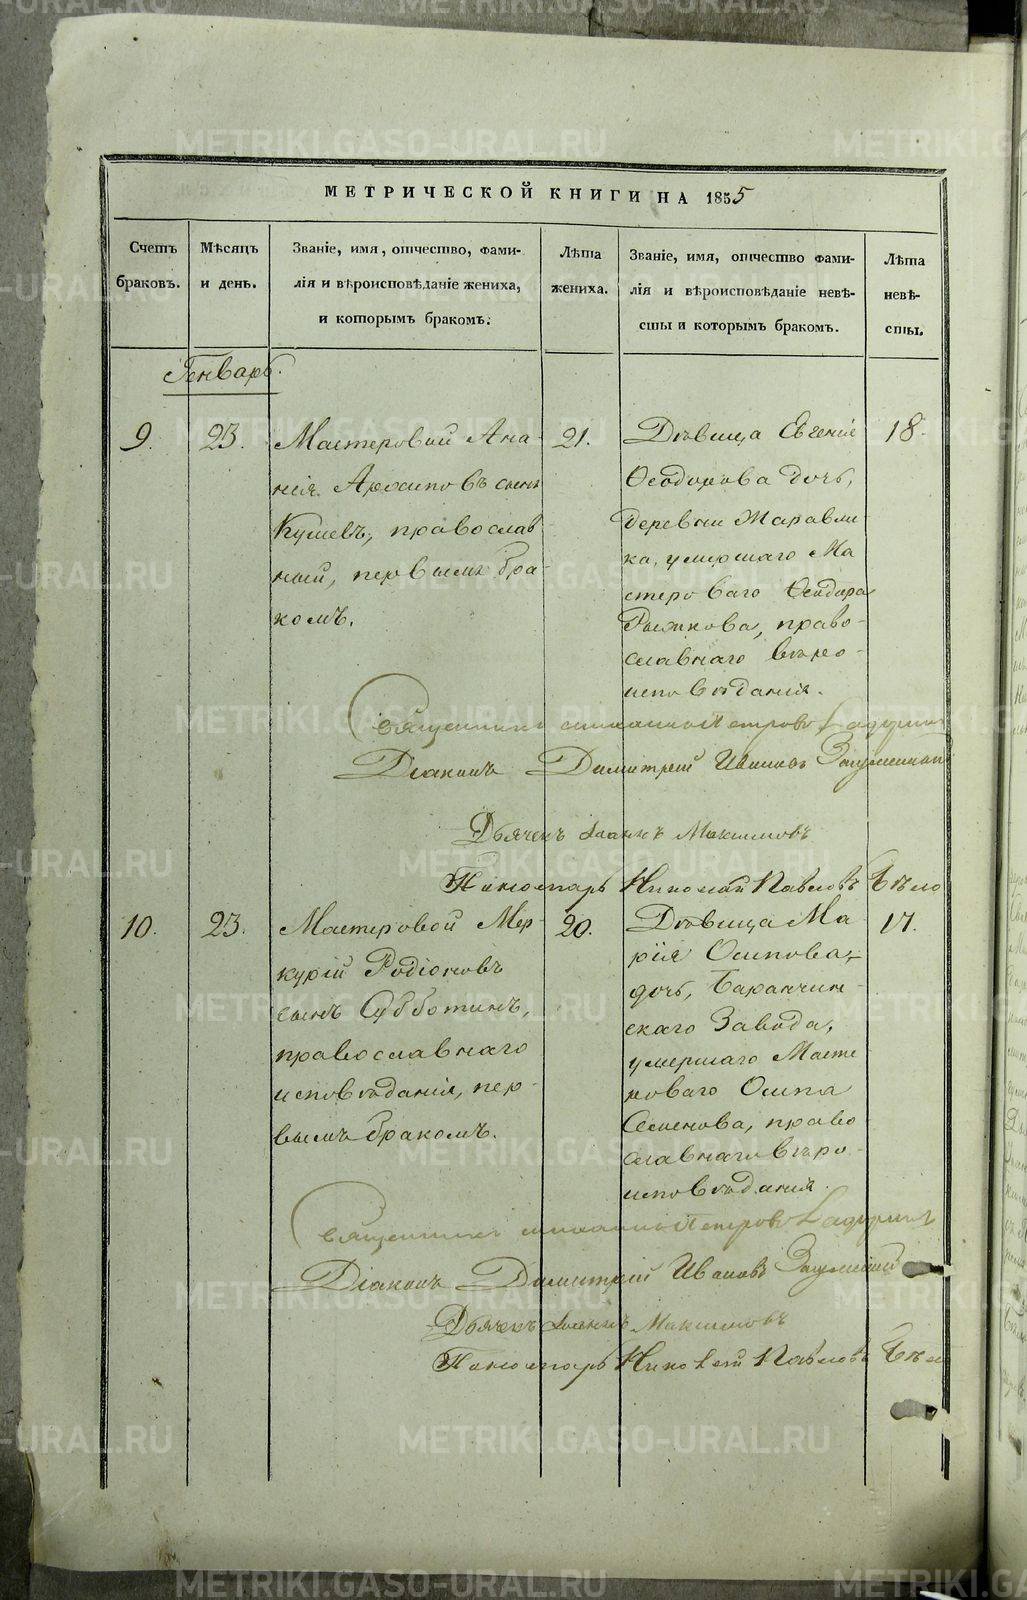 МЕТРИЧЕСКОЙ КНИГИ НА 1855
Счетъ браковъ.
Мѣсяцъ и день.
Званіе, имя, отчество, фами-
лія и вѣроисповѣданіе жениха,
и которымъ бракомъ.
Лѣта жениха.
Званіе, имя, отчество фами-
лія и вѣроисповѣданіе невѣ-
сты и которымъ бракомъ.
Лѣта невѣ-
сты.
Генварь.
9.
23.
Мастеровой Ана-
нія Архиповъ сынъ
православ
ный, первымъ бра-
комъ.
21.
Дѣвица Евгенія
Ѳеодорова дочь,
деревни Жаравли
ка, умершаго Ма
стероваго Ѳеодора
Рыжкова, право-
славнаго вѣро-
исповѣданія.
18.
Священникъ Петровъ
Діаконъ Димитрій Ивановъ
Дьячекъ Іоаннъ Максимовъ
Пономарь Николай Павловъ
10.
23.
Мастеровой Мер-
курій Родіоновъ
сынъ Субботинъ,
православнаго
исповѣданія, пер-
вымъ бракомъ.
20.
Дѣвица Ма
рія Осипова
дочь, Баранчин-
скаго Завода,
умершаго Масте
роваго Осипа
Семенова, право
славнаго вѣро-
исповѣданія.
17.
Священникъ Петровъ
Діаконъ Димитрій Ивановъ
Дьячекъ Іоаннъ Максимовъ
Пономарь Николай Павловъ
METRIKI.GASO-URAL.RU